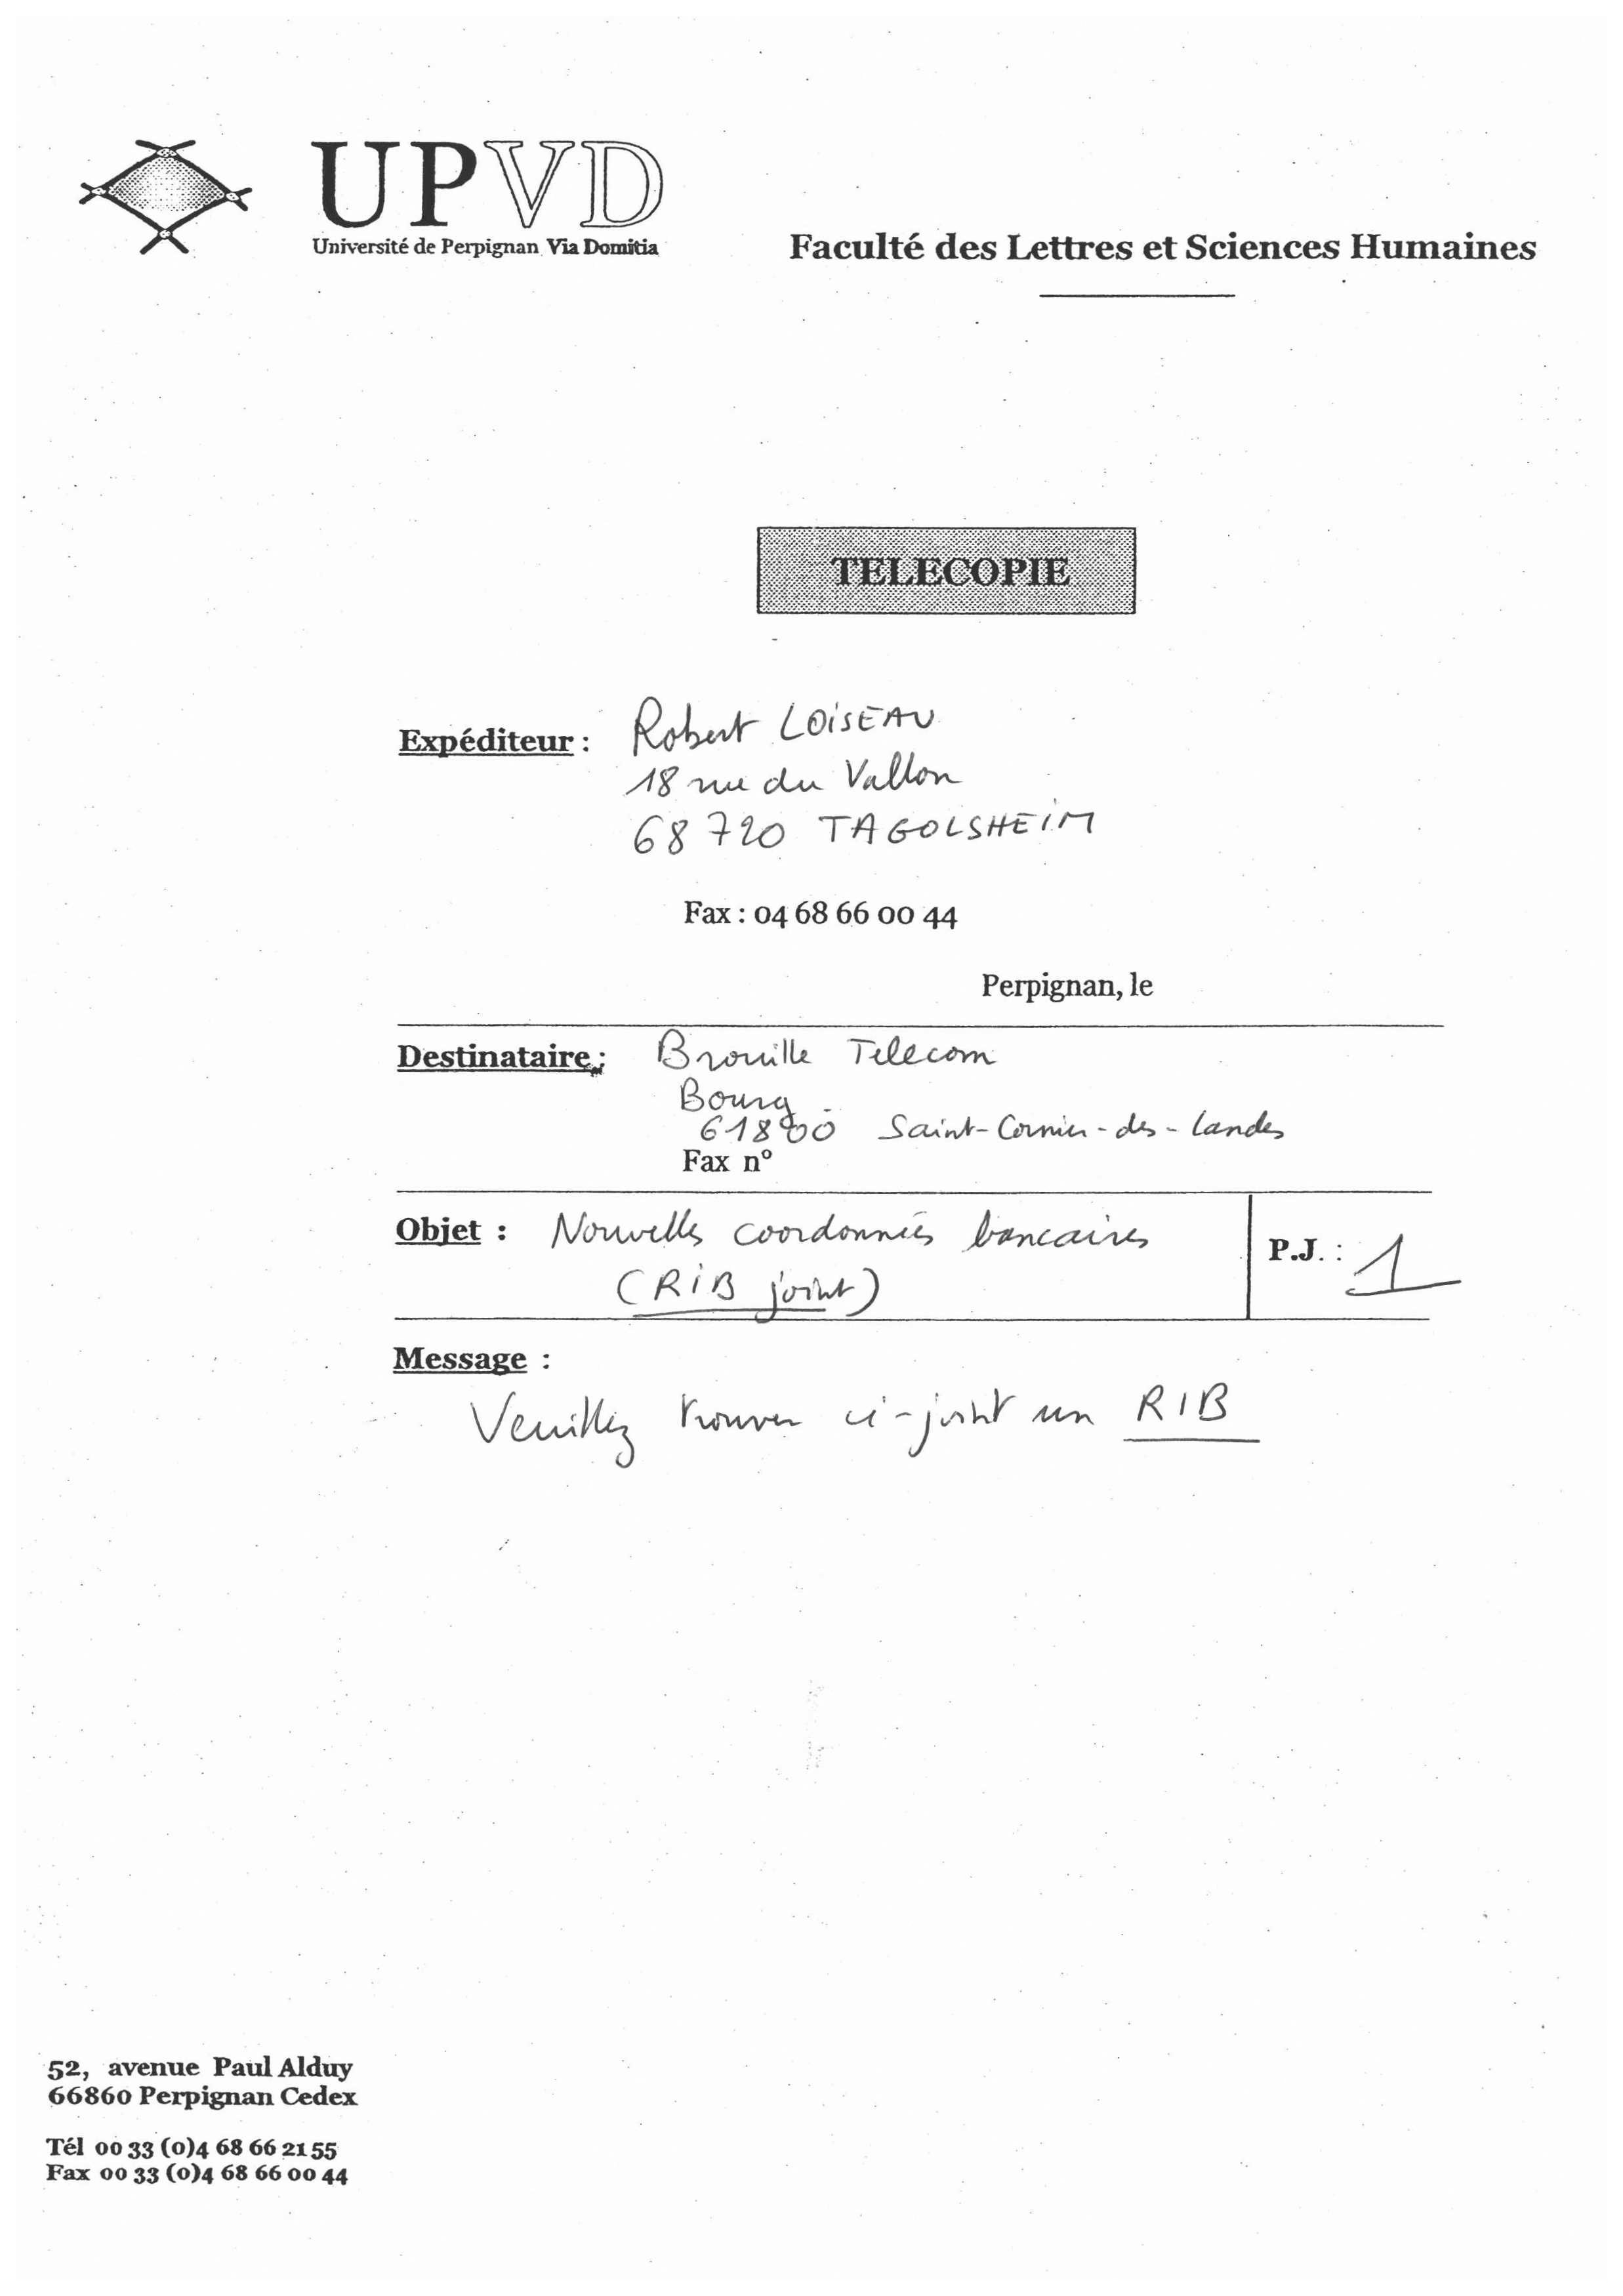 UPVD
Université de Perpignan Via Domitia
Faculté des Lettres et Sciences Humaines
TELECOPIE
Expéditeur : Robert LOISEAU
18 rue du Vallon
68720 TAGOLSHEIM
Fax : 04 68 66 00 44
Perpignan, le
Destinataire : Brouille Telecom
Bourg
61800 Saint-Cornier-des-Landes
Fax n°
Objet : Nouvelles coordonnées bancaires
(RIB joint)
P.J. : 1
Message :
Veuillez trouver ci-joint un RIB
52, avenue Paul Alduy
66860 Perpignan Cedex
Tél 00 33 (0)4 68 66 21 55
Fax 00 33 (0)4 68 66 00 44